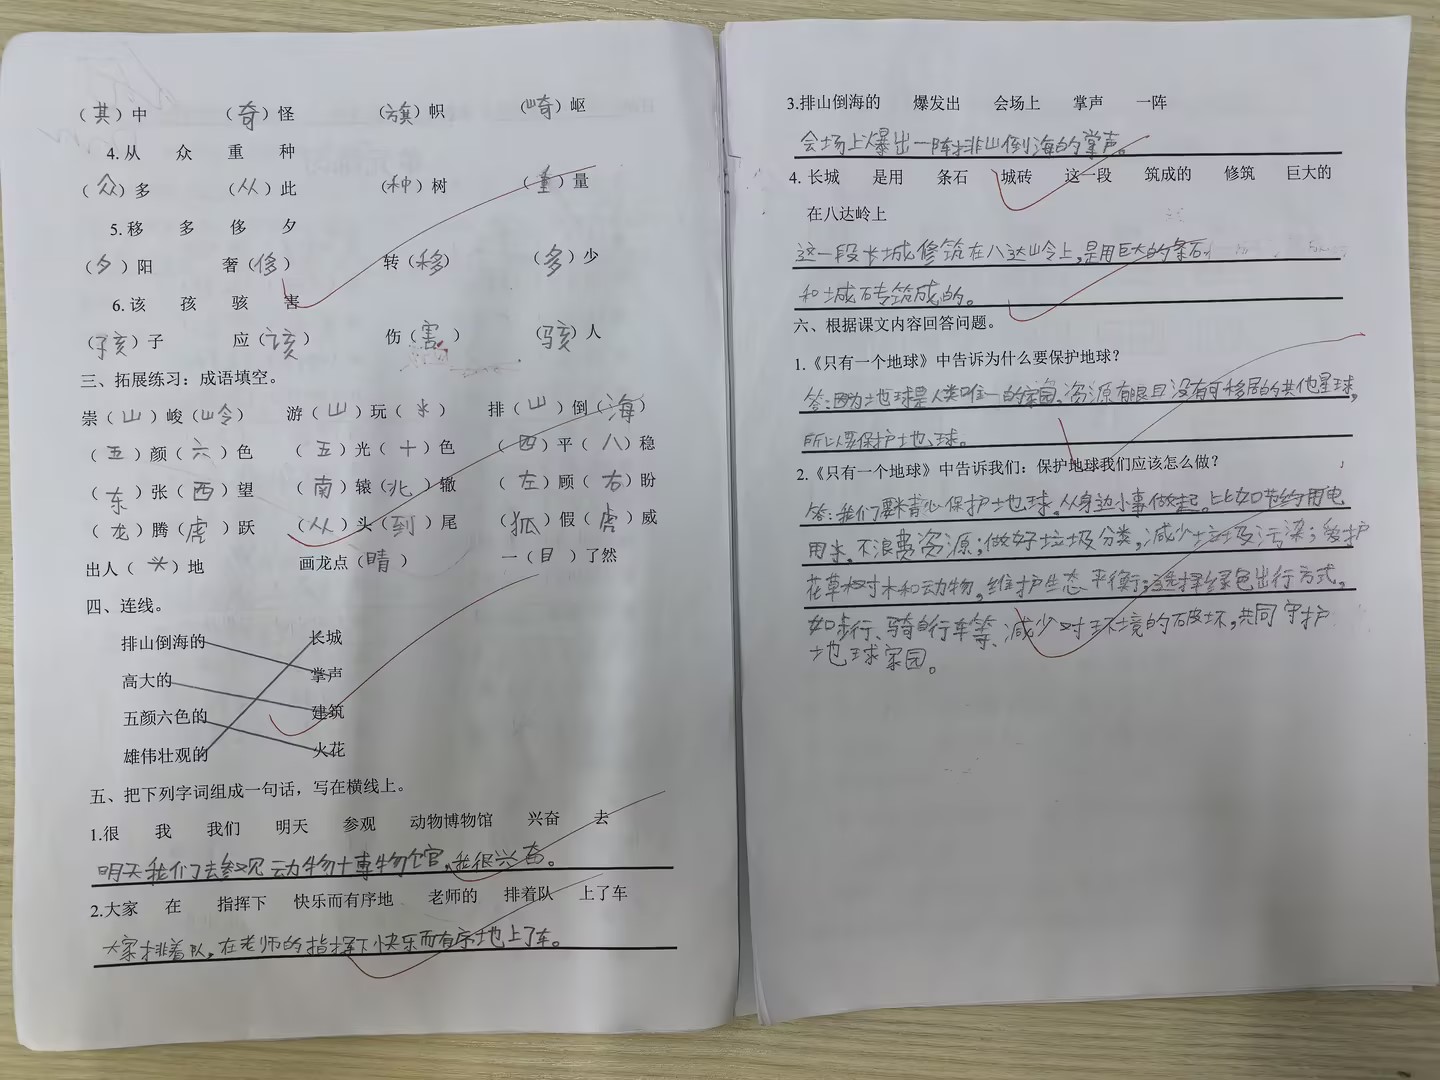 （其）中 （奇）怪 （旗）帜 （崎）岖
4.从 众 重 种
（众）多 （从）此 （种）树 （重）量
5.移 多 侈 夕
（夕）阳 奢（侈） 转（移） （多）少
6.该 孩 骇 害
（孩）子 应（该） 伤（害） （骇）人
三、拓展练习：成语填空。
崇（山）峻（岭） 游（山）玩（水） 排（山）倒（海）
（五）颜（六）色 （五）光（十）色 （四）平（八）稳
（东）张（西）望 （南）辕（北）辙 （左）顾（右）盼
（龙）腾（虎）跃 （从）头（到）尾 （狐）假（虎）威
出人（ ）地 画龙点（睛） 一（目）了然
四、连线。
排山倒海的 长城
高大的 掌声
五颜六色的 建筑
雄伟壮观的 火花
五、把下列字词组成一句话，写在横线上。
1.很 我 我们 明天 参观 动物博物馆 兴奋 去
明天我们去参观动物博物馆，我很兴奋。
2.大家 在 指挥下 快乐而有序地 老师的 排着队 上了车
大家排着队，在老师的指挥下快乐而有序地上了车。
3.排山倒海的 爆发出 会场上 掌声 一阵
会场上爆出一阵排山倒海的掌声。
4. 长城 是用 条石 城砖 这一段 筑成的 修筑 巨大的
在八达岭上
这一段长城修筑在八达岭上，是用巨大的条石
和城砖筑成的。
六、根据课文内容回答问题。
1.《只有一个地球》中告诉为什么要保护地球？
答：因为地球是人类唯一的家园，资源有限且没有可移居的其他星球，
所以要保护地球。
2.《只有一个地球》中告诉我们：保护地球我们应该怎么做？
答：我们要精心保护地球。从身边小事做起。比如节约用电
用水，不浪费资源；做好垃圾分类，减少垃圾污染；爱护
花草树木和动物，维护生态平衡；选择绿色出行方式，
如步行、骑自行车等，减少对环境的破坏，共同守护
地球家园。